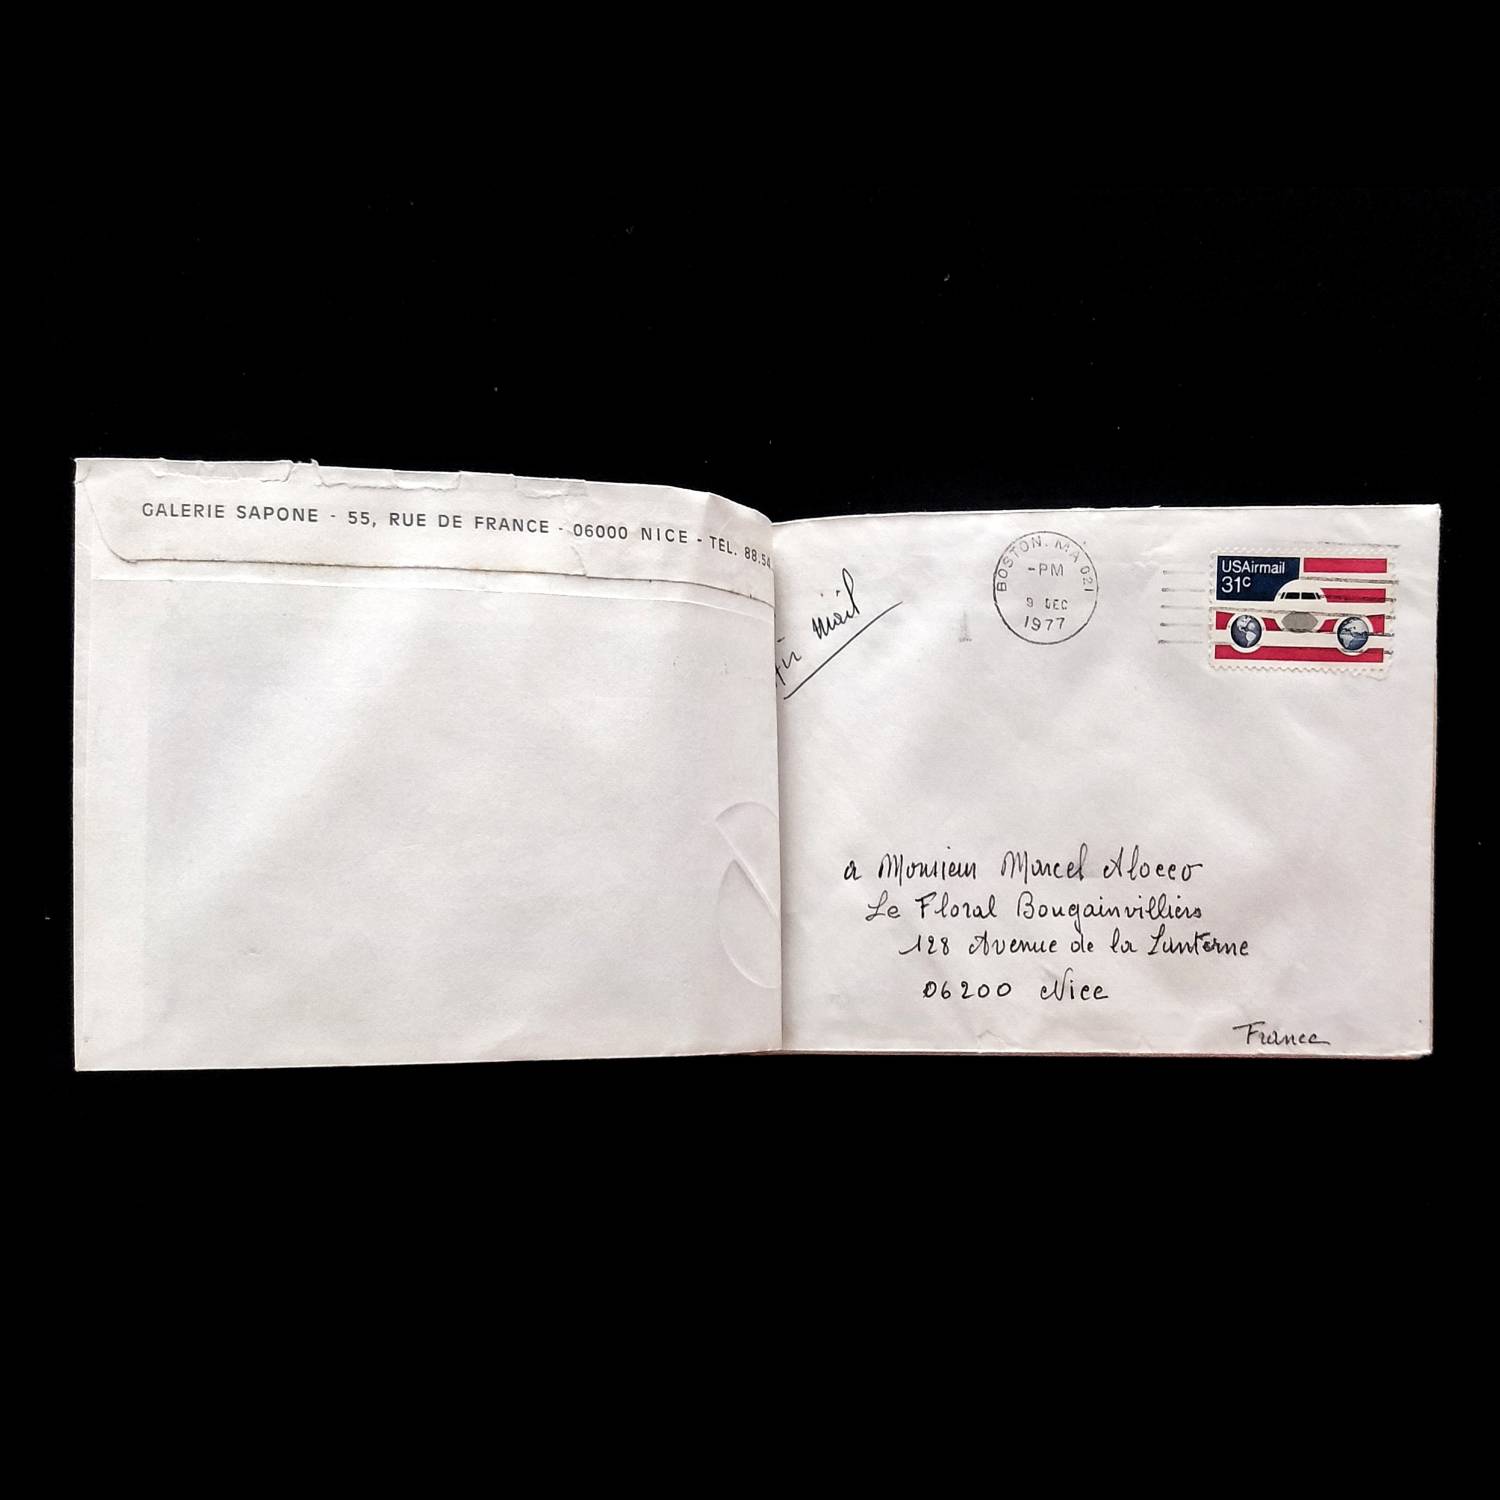 GALERIE SAPONE - 55, RUE DE FRANCE - 06000 NICE - TEL. 88.54
Air mail
BOSTON. MA 021
-PM
9 DEC
1977
USAirmail
31c
a Monsieur Marcel Alocco
Le Floral Bougainvilliers
128 Avenue de la Lanterne
06200 Nice
France